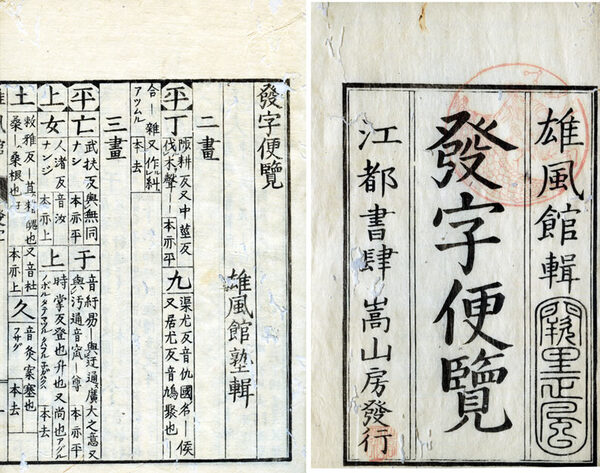 雄風館輯
發字便覽
江都書肆 嵩山房發行
發字便覽
雄風館塾輯
二畫
平 丁 陟耕反又中莖反
伐木聲ー 本亦平
九 渠尤反音仇國名ー侯
又居尤反音鳩聚也ー
合ー雜又作糾
アツムル 本去
三畫
平 亡 武扶反與無同
ナシ 本亦平
于 音紆易ー與迂通廣大之意又
與汚通音窊ー尊 本亦平
上 女 人渚反音汝
ナンジ 本亦上
上 時掌反登也升也又尚也アグル
ノボル タテマツル 本去
土 又音杜
桑ー桑根也 本亦上
久 音灸塞也
フサグ 本去